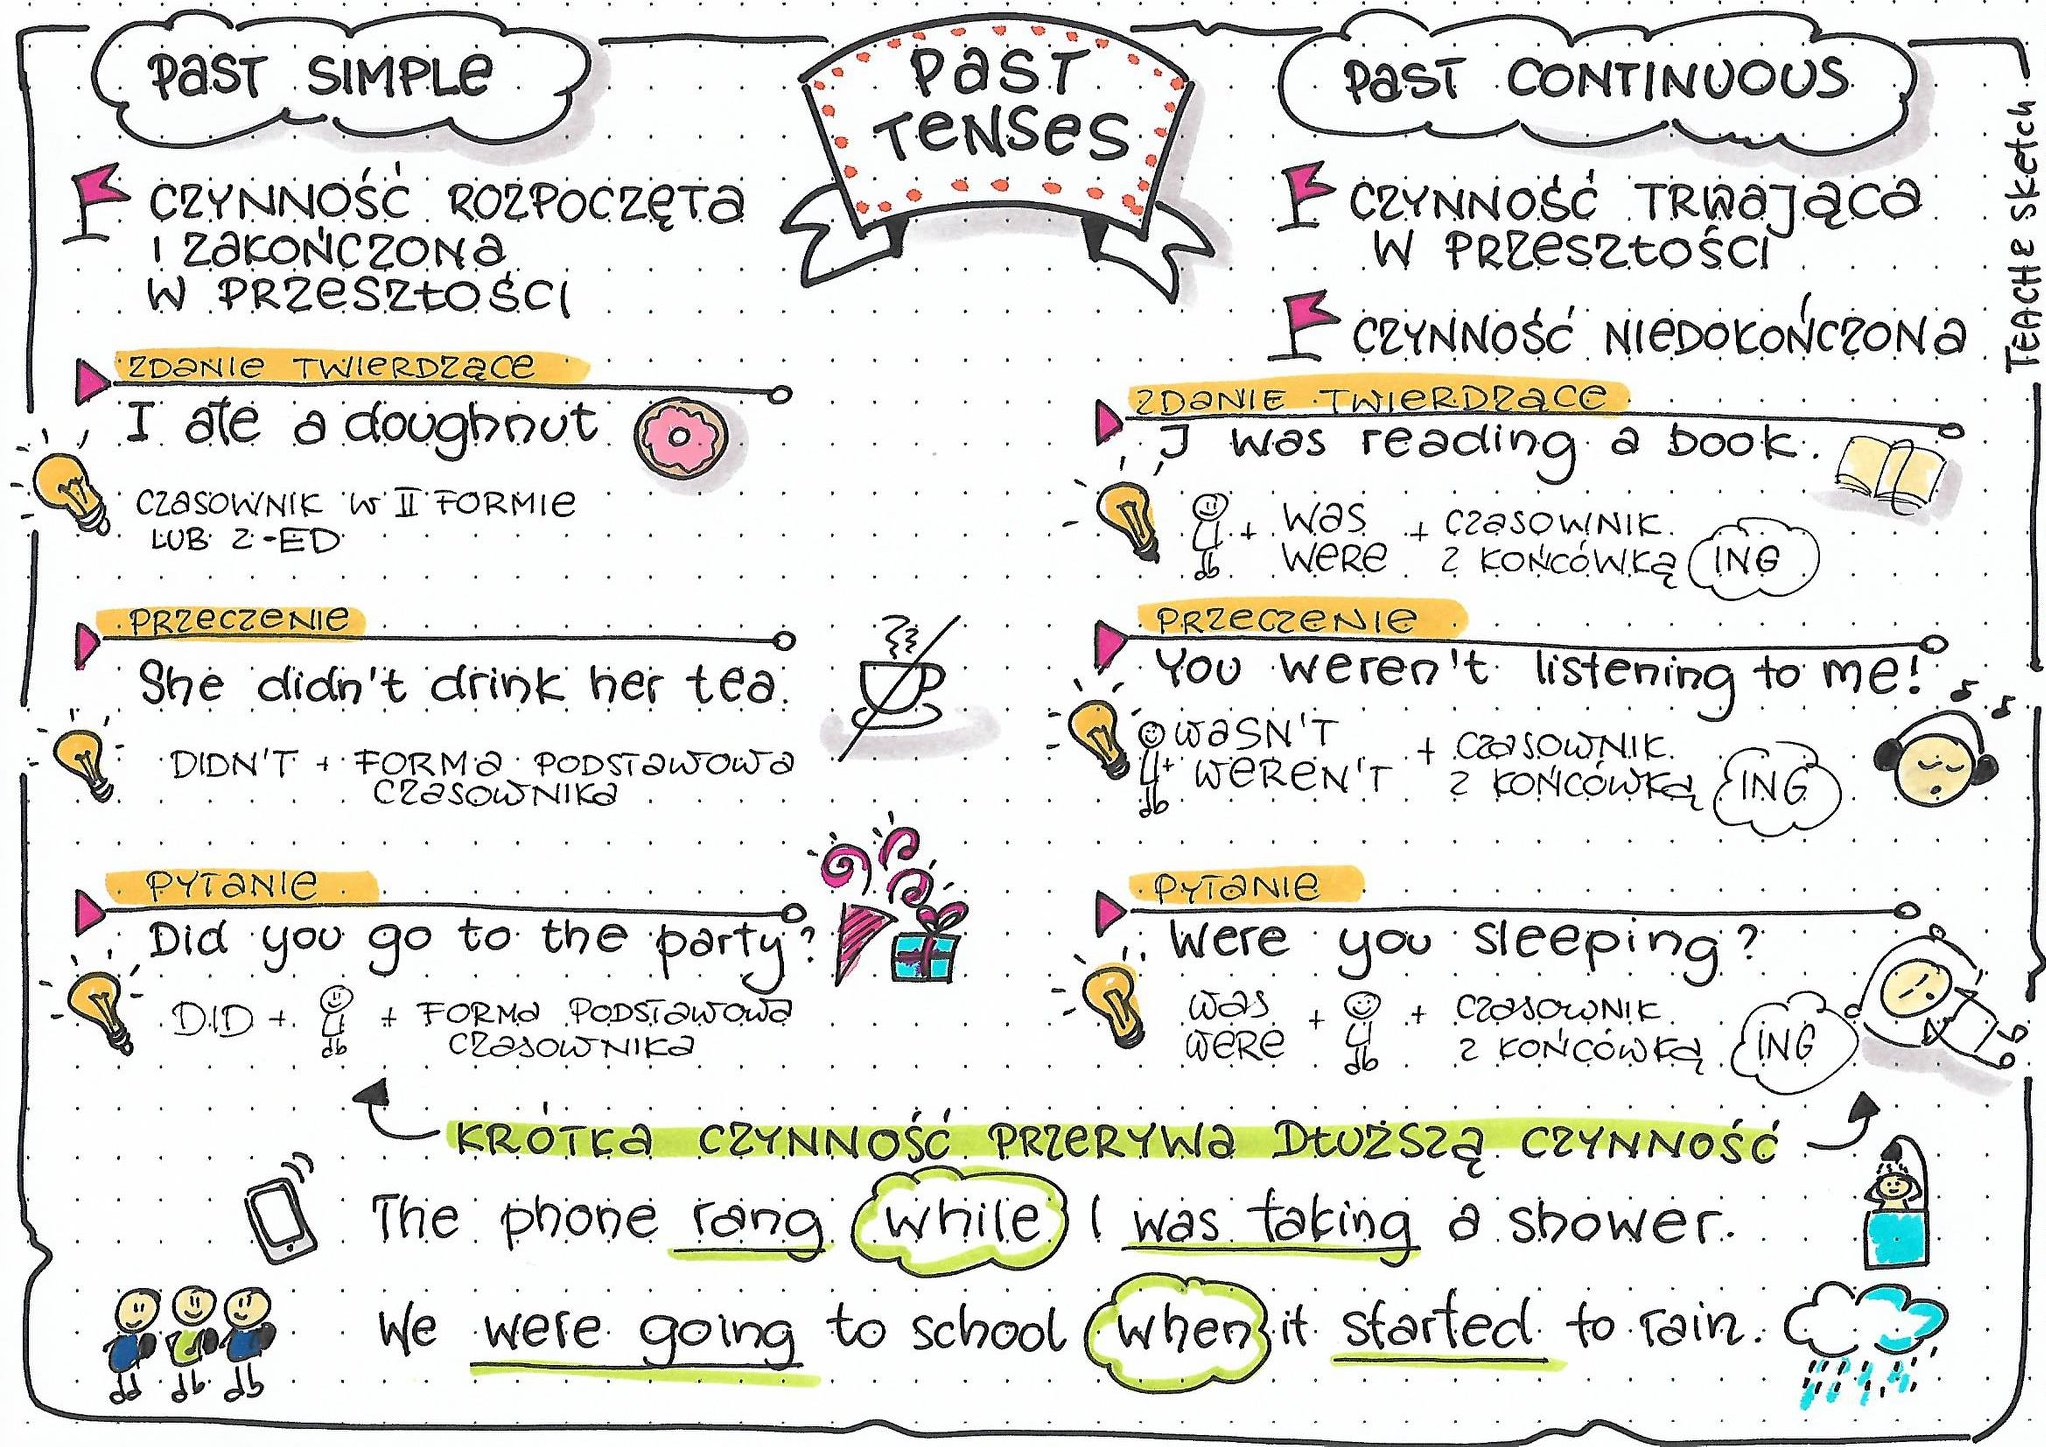 PAST TENSES
PAST SIMPLE
CZYNNOŚĆ ROZPOCZĘTA
I ZAKOŃCZONA
W PRZESZŁOŚCI
ZDANIE TWIERDZĄCE
I ate a doughnut
CZASOWNIK W II FORMIE
LUB Z -ED
PRZECZENIE
She didn't drink her tea.
DIDN'T + FORMA PODSTAWOWA
CZASOWNIKA
PYTANIE
Did you go to the party?
DID + + FORMA PODSTAWOWA
CZASOWNIKA
PAST CONTINUOUS
CZYNNOŚĆ TRWAJĄCA
W PRZESZŁOŚCI
CZYNNOŚĆ NIEDOKOŃCZONA
ZDANIE TWIERDZĄCE
I was reading a book.
+ WAS + CZASOWNIK
WERE Z KOŃCÓWKĄ ING
PRZECZENIE
You weren't listening to me!
WASN'T + CZASOWNIK
+ WEREN'T Z KOŃCÓWKĄ ING
PYTANIE
Were you sleeping?
WAS + + CZASOWNIK
WERE Z KOŃCÓWKĄ ING
KRÓTKA CZYNNOŚĆ PRZERYWA DŁUŻSZĄ CZYNNOŚĆ
The phone rang while I was taking a shower.
We were going to school when it started to rain.
TEACH & SKETCH